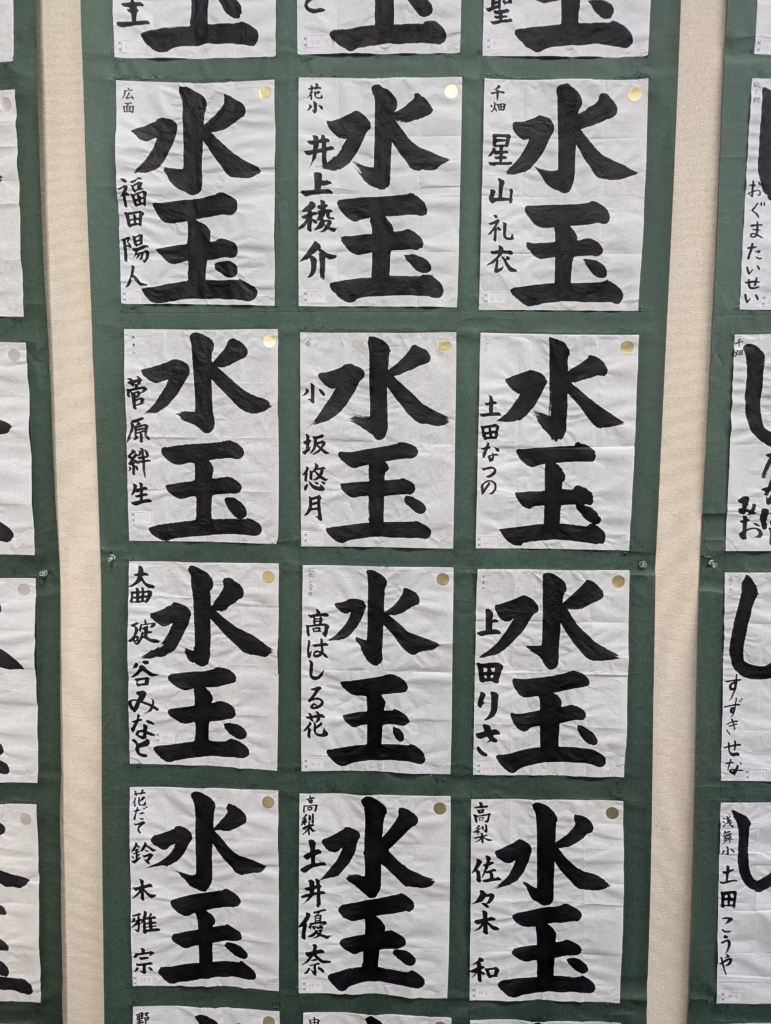 主
と
聖
広面
福田陽人
水玉
花小
井上稜介
水玉
千畑
星山礼衣
水玉
おぐまたいせい
菅原絆生
水玉
小坂悠月
水玉
土田なつの
水玉
千畑
みお
大曲
碇谷みなと
水玉
高はしる花
水玉
上田りさ
水玉
すずきせな
花だて
鈴木雅宗
水玉
高梨
土井優奈
水玉
高梨
佐々木和
水玉
浅舞小
土田こうや
野